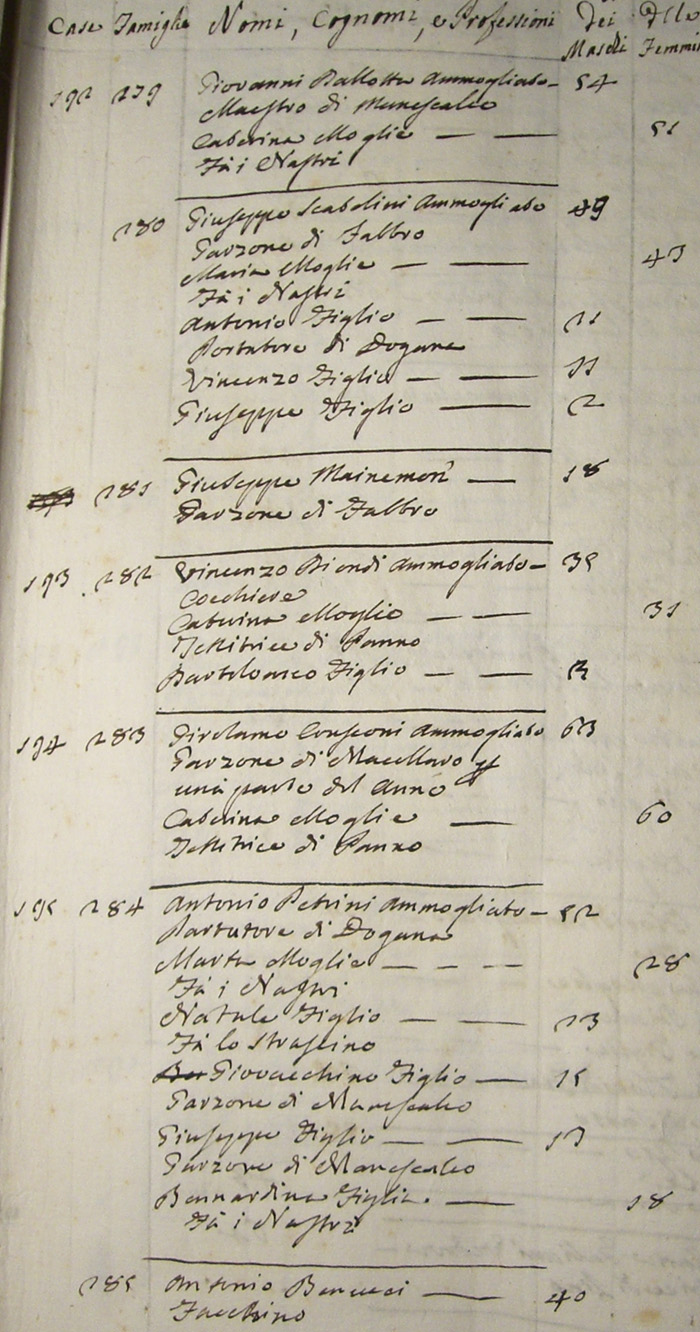 Case Famiglie Nomi, Cognomi, e Professioni Dei Maschi Delle Femmi
192 279 Giovanni Ballotta Ammogliato 54
Maestro di Manescalco
Caterina Moglie 51
Fà i Nastri
280 Giuseppe Scabolini Ammogliato 49
Garzone di Fabbro
Maria Moglie 43
Fà i Nastri
Antonio Figlio 21
Portatore di Dogana
Vincenzo Figlio 11
Giuseppe Figlio 2
281 Giuseppe Mainemori 18
Garzone di Fabbro
193 282 Vincenzo Biondi Ammogliato 35
Cocchiere
Caterina Moglie 31
Tessitrice di Panno
Bartolomeo Figlio
194 283 Girolamo Consconi Ammogliato 63
Garzone di Macellaro p
una parte del Anno
Caterina Moglie 60
Tessitrice di Panno
195 284 Antonio Petrini Ammogliato 52
Portatore di Dogana
Marta Moglie 28
Fà i Nastri
Natale Figlio 23
Fà lo Strascino
Giovacchino Figlio 15
Garzone di Manescalco
Giuseppe Figlio 13
Garzone di Manescalco
Bernardina Figlia 18
Fà i Nastri
285 Antonio Benucci 40
Facchino